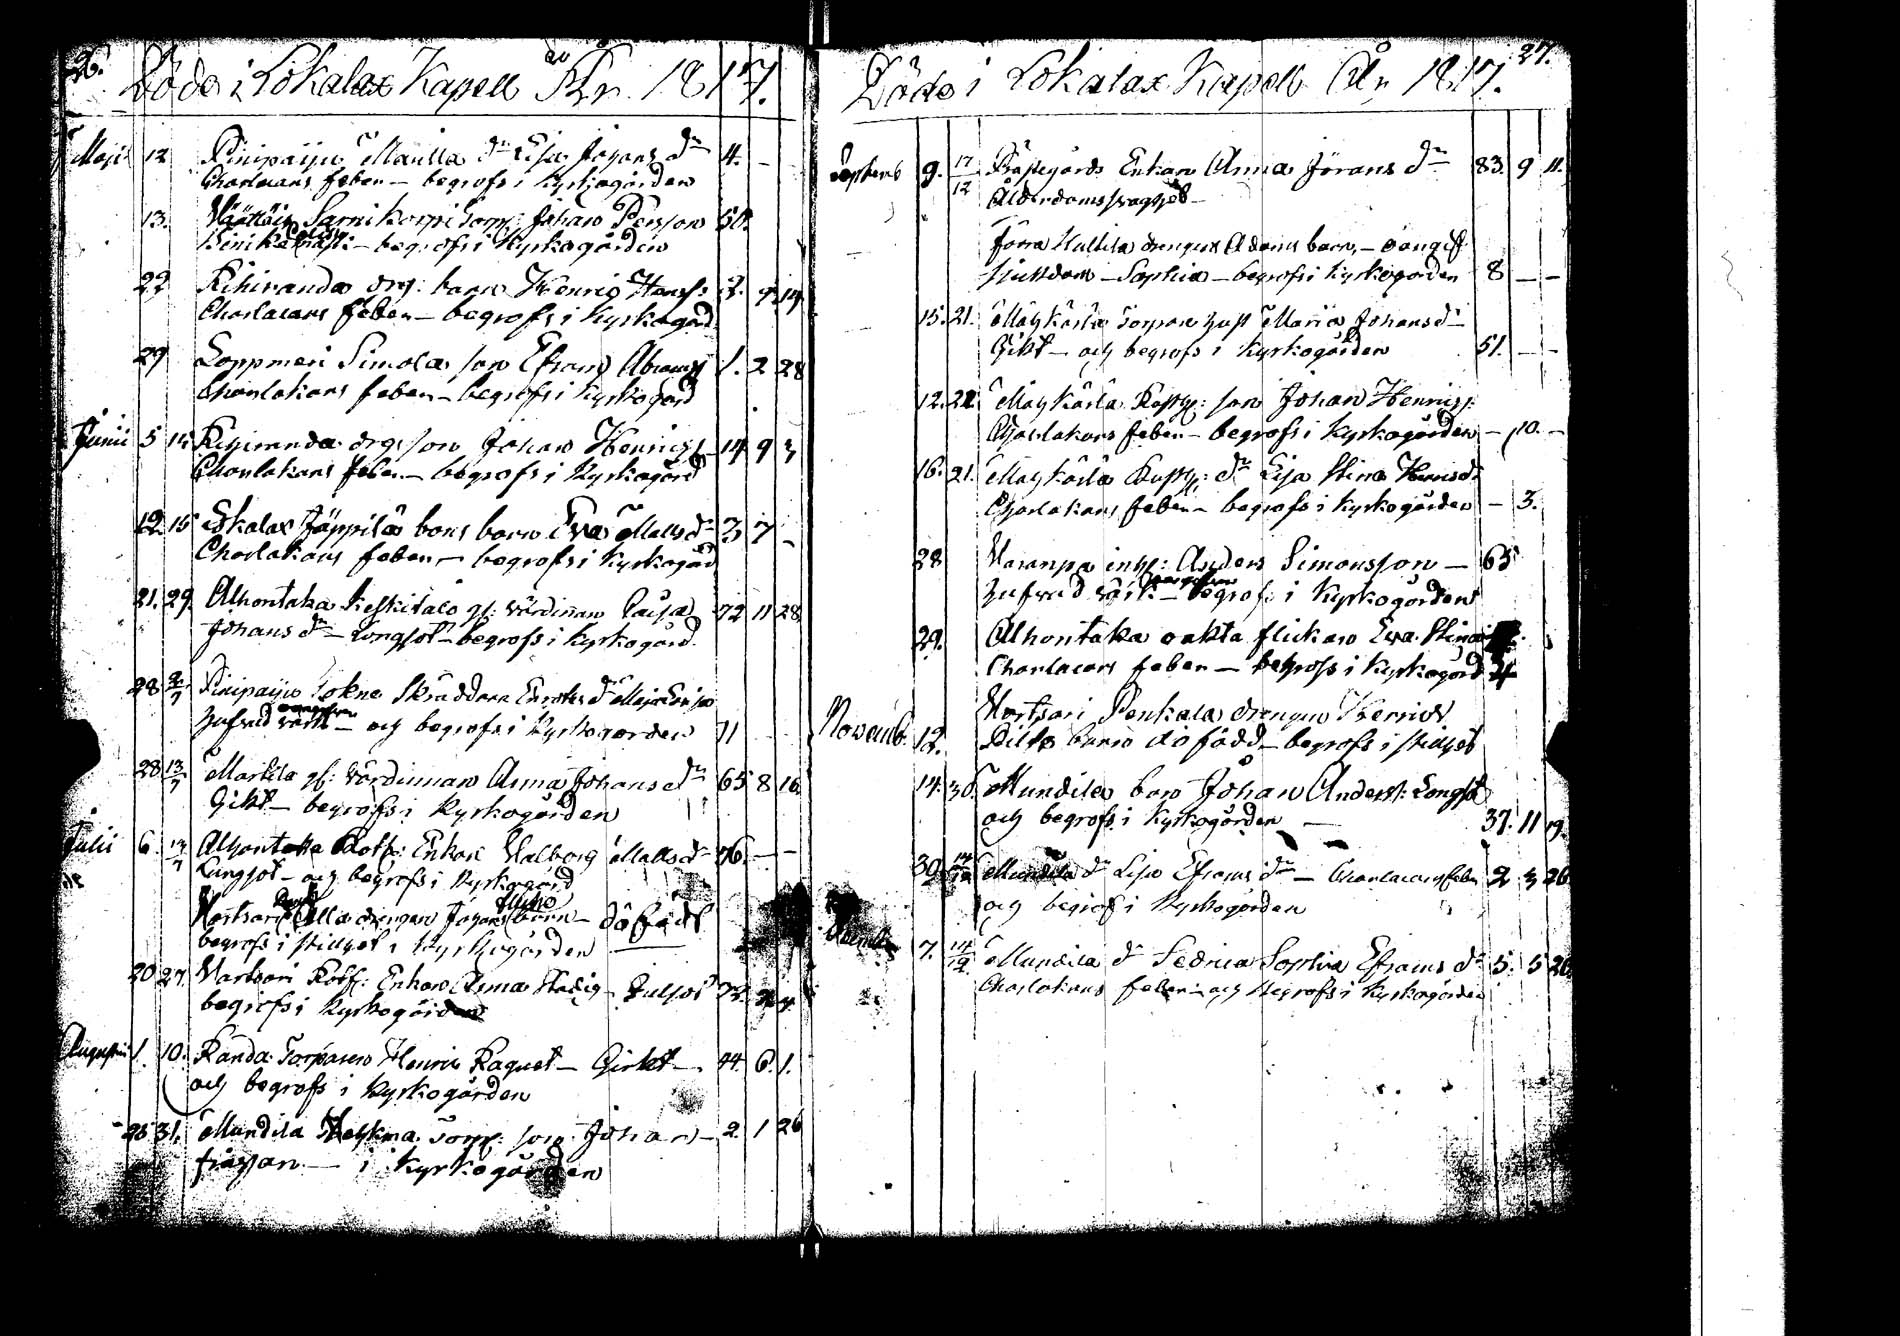 26.
Döde i Lokalax Kapell År 1817.
Maji 12 Pinipaiju Maulla dr Lisa Johans dr 4. –
Charlacans feber – begrofs i Kyrkogården
13. Sarnikorpi Torp: Johan Persson 50.
– begrofs i Kyrkogården
22 Rihiranda drg: barn Henric Henrss: 2. 9. 14
Charlacans feber – begrofs i Kyrkogård
29 Loppmeri Simola son Efraim Abramss 1. 2 28
Charlakans feber – begrofs i Kyrkogård
Junii 5 15 Rihiranda drg: son Johan Henricss – 14 9 3
Charlakans feber – begrofs i Kyrkogård
12. 15 Lokalax Jäppilä bons barn Eva Matts dr 3 7 –
Charlakans feber – begrofs i Kyrkogård
21. 29. Alhontaka Keskitalo gl: värdinnan Caisa 72 11 28
Johans dr – Lungsot – begrofs i Kyrkogård.
28 2/7 Pinipaiju Skräddare
hufvud värk – och begrofs i Kyrkogården 11
28 13/7 Markila gl: Värdinnan Anna Johans dr 65 8 16
Gikt – begrofs i Kyrkogården
Julii 6. 13/7 Alhontaka Rotf: Enkan Valborg Matts dr 76. – –
Lungsot – och begrofs i Kyrkogård
Vartsari drengen Johans barn – dödfödt
begrofs i stillhet i Kyrkogården
20 27. Vartsari Rotf: Enkan Anna Stadig – Gulsot 72.
begrofs i Kyrkogården
Augusti 1. 10. Randa Torparen Henric Raquet – Gickt – 44. 6. 1.
och begrofs i Kyrkogården
25 31. Mundila Torp: son Johan – 2. 1 26
frässan – i Kyrkogården
27.
Döde i Lokalax Kapell År 1817.
Septemb 9. 17/12 Prästegårds Enkan Anna Jörans dr 83. 9 11.
Ålderdomssvaghet –
Förra Hullila drengens Adams barn, – oangif
sjukdom – Sophia – begrofs i Kyrkogården 8 – –
15. 21. Mäykärlä Torpare hust Maria Johans dr
Gikt – och begrofs i Kyrkogården 51. – –
12. 21 Mäykärlä Rustg: son Johan Henricss:
Charlakans feber – begrofs i Kyrkogården – 10. –
16. 21. Mäykärlä Rustg: dr Lisa Stina Henrics dr
Charlakans feber – begrofs i Kyrkogården – 3.
28 Varanpä inhs: Anders Simonsson – 65
hufvud värk – begrof: i Kyrkogården
29. Alhontaka oäkta flickan Eva Stina
Charlacans feber – begrofs i Kyrkogård
Novemb. 12. Vartsari Penkala drengen Henrics
barn dödfödd – begrofs i stillhet
14. 30. Mundila bon Johan Anderss: Lungsot
och begrofs i Kyrkogården – 37. 11 19.
30. 14/12 Mundila dr Lisa Efraims dr – Charlacans feber 2 3 26
och begrof i Kyrkogården
7. 14/12. Mundila dr Fedrica Sophia Efraims dr 5. 5 26
Charlakans feber – och begrofs i Kyrkogården